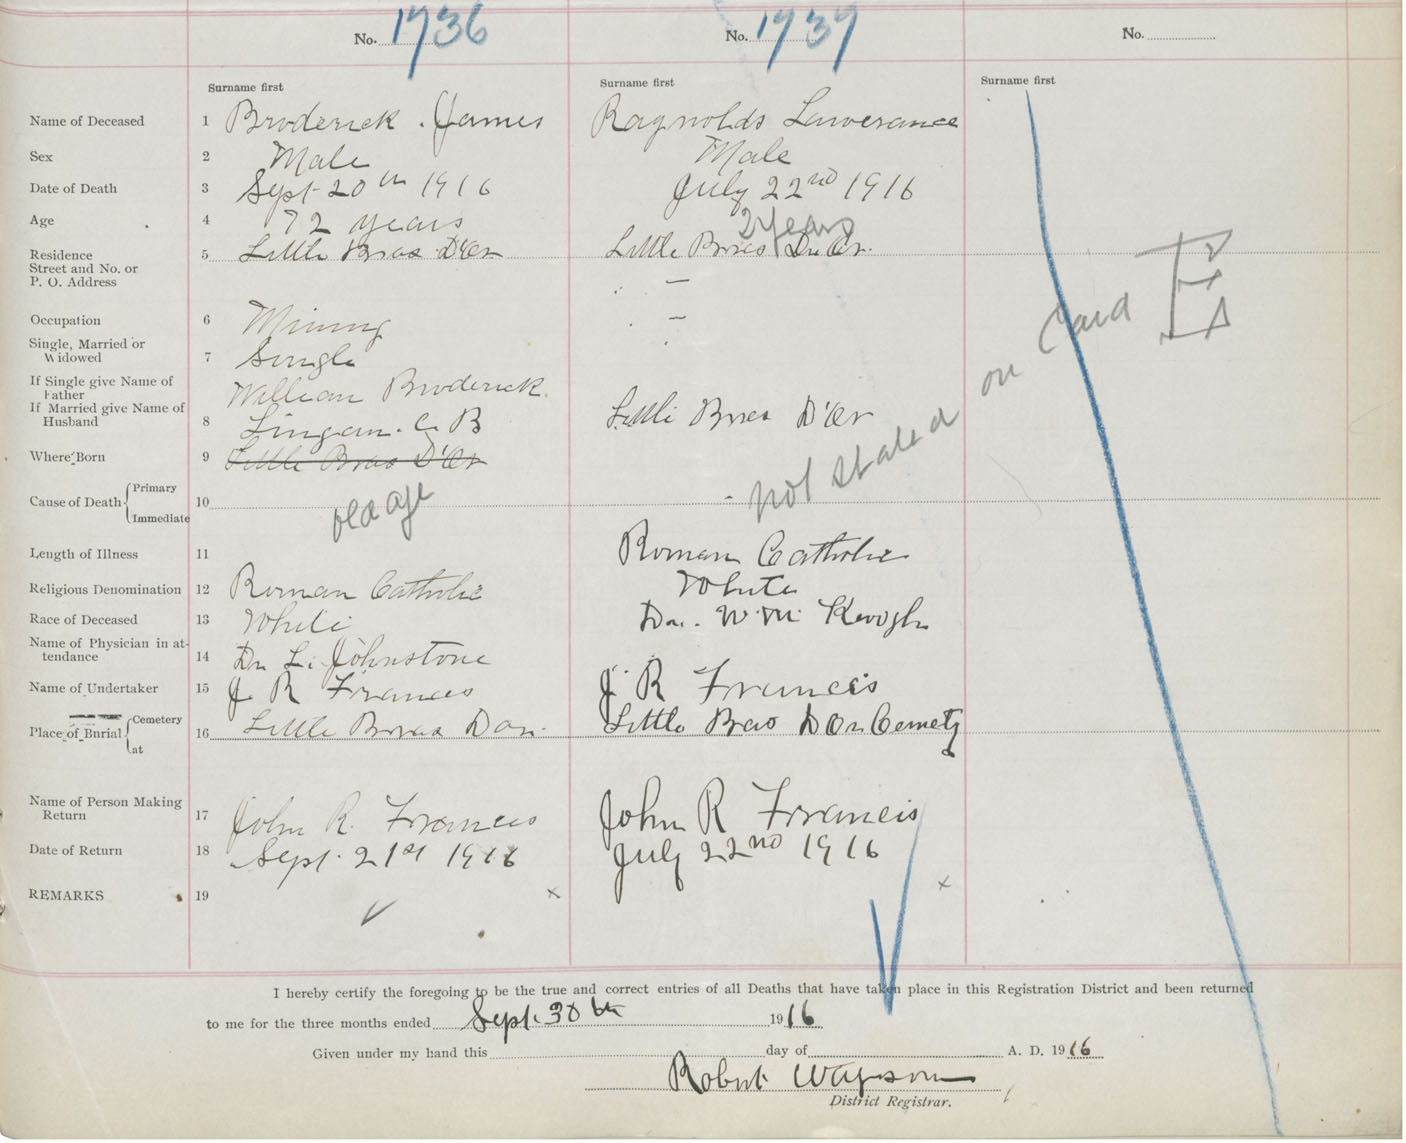 No. 1936 No. 1937 No.
Surname first Surname first Surname first
Name of Deceased 1 Broderick. James Raynolds Lawerance
Sex 2 Male Male
Date of Death 3 Sept 20th 1916 July 22nd 1916
Age 4 72 years 2 years
Residence 5 Little Bras D'Or Little Bras Du Or.
Street and No. or
P. O. Address —
Occupation 6 Mining —
Single, Married or
Widowed 7 Single
If Single give Name of
Father William Broderick
If Married give Name of
Husband 8 Lingan. C. B Little Bras D'Or
Where Born 9 Little Bras D'Or
Cause of Death { Primary
10 old age not stated on Card
Immediate
Length of Illness 11 Roman Catholic
Religious Denomination 12 Roman Catholic White
Race of Deceased 13 White Dr. W. M. Keogh
Name of Physician in at-
tendance 14 Dr L. Johnstone
Name of Undertaker 15 J. R Francis J. R Francis
Place of Burial { Cemetery
at 16 Little Bras Dor. Little Bras D Or Cemety
Name of Person Making
Return 17 John R. Francis John R Francis
Date of Return 18 Sept. 21st 1916 July 22nd 1916
REMARKS 19 x x
I hereby certify the foregoing to be the true and correct entries of all Deaths that have taken place in this Registration District and been returned
to me for the three months ended Sept. 30th 1916
Given under my hand this day of A. D. 1916
Robert
District Registrar.